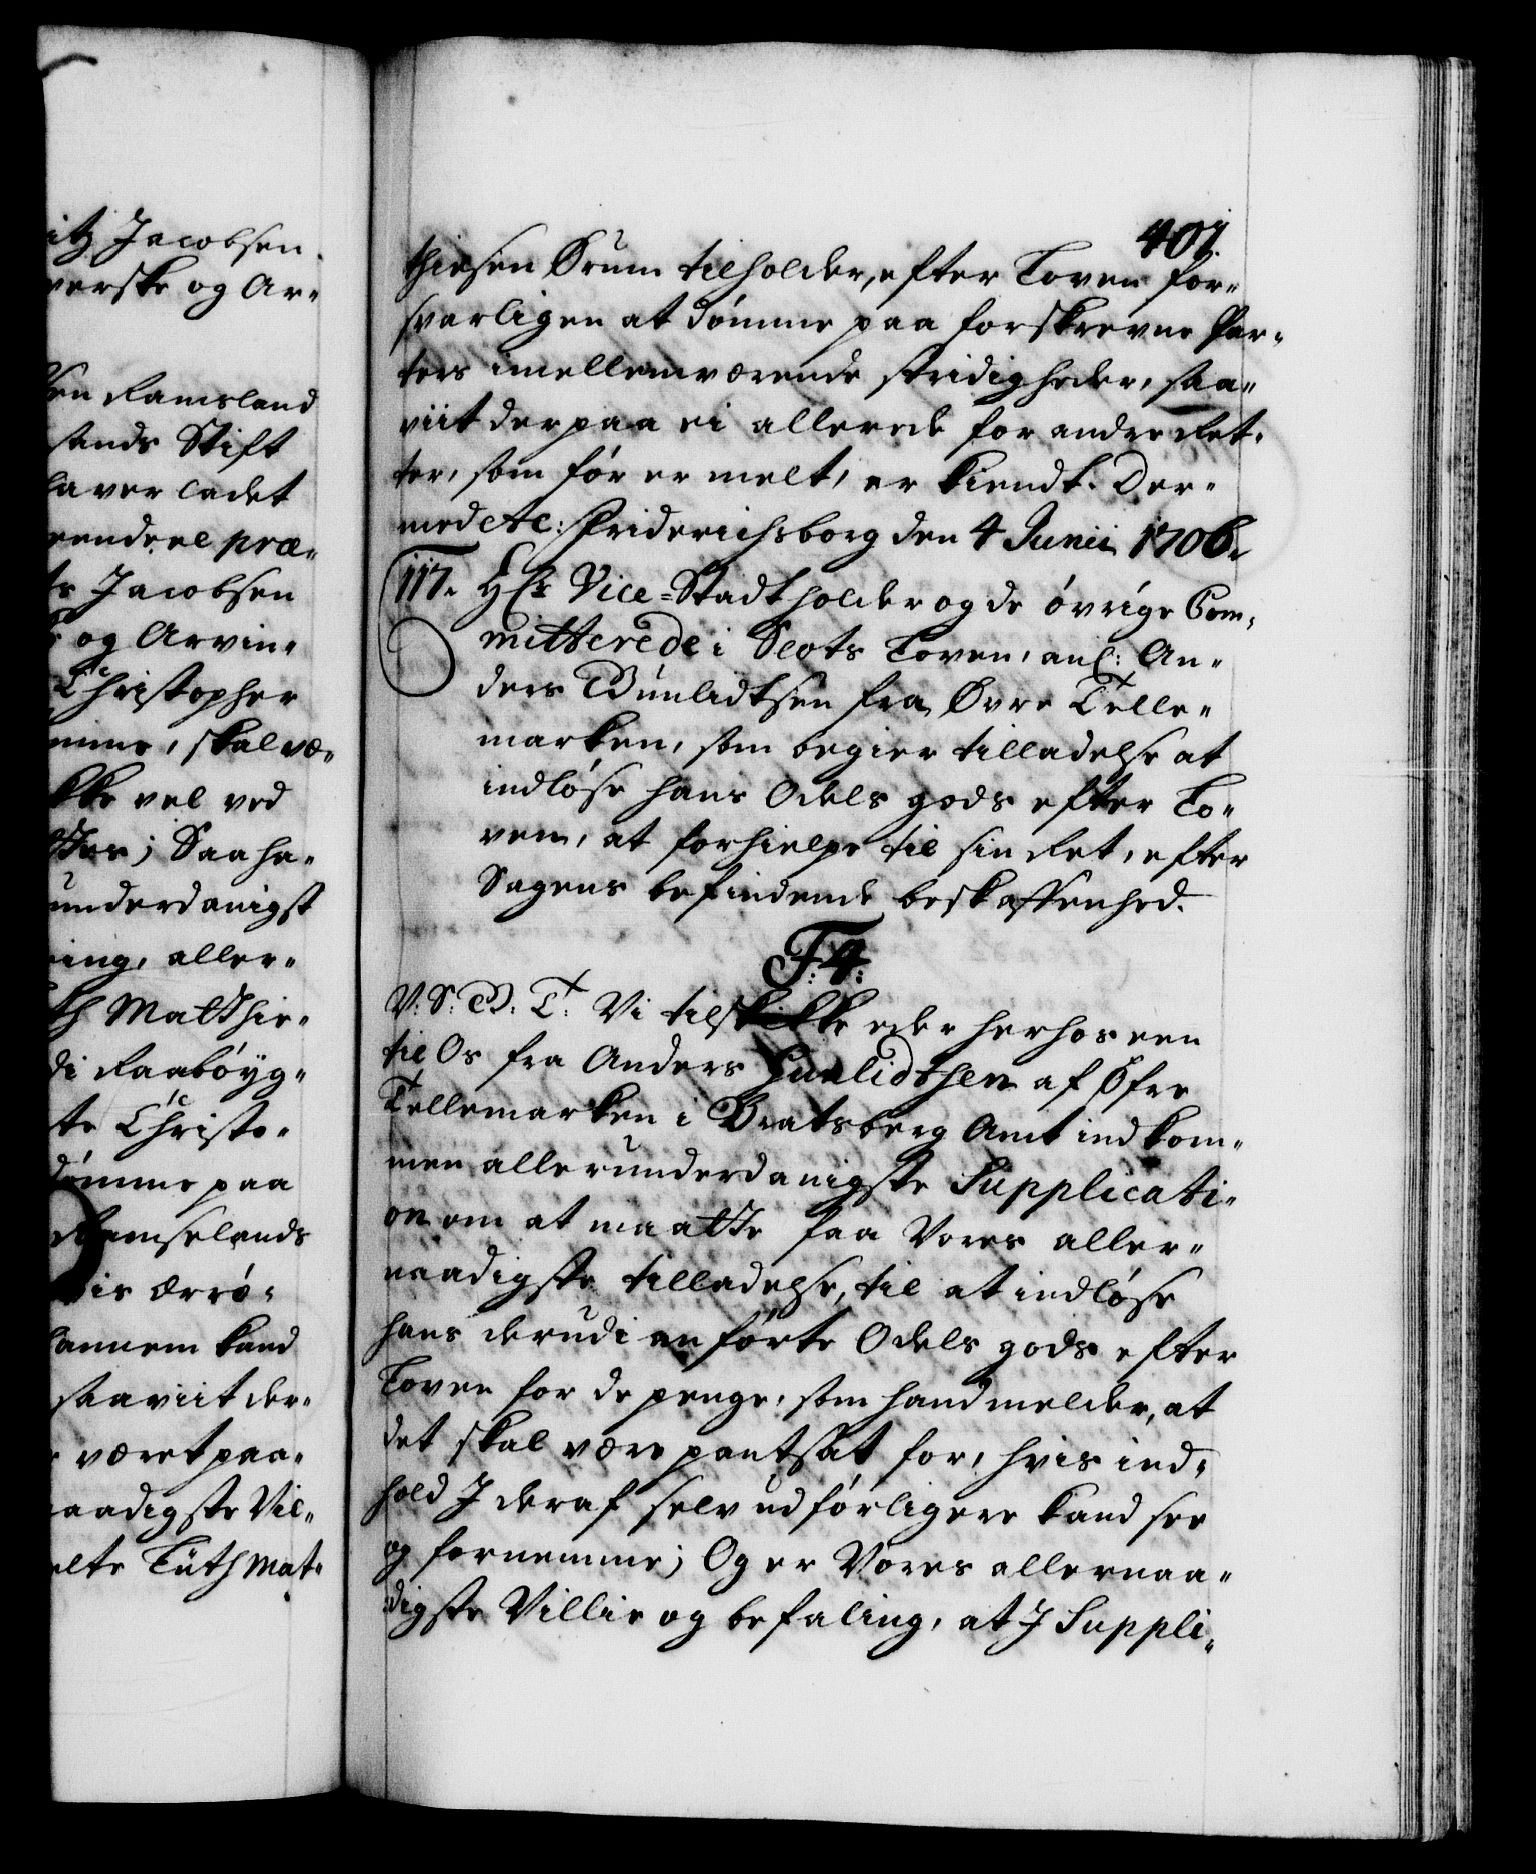 itz Jacobsen.
verske og Ar-
sen Ramsland
sands Stift
laver ladet
eendeel præ-
ts Jacobsen
og Arvin-
Christopher
mme, skal væ-
kke vel ved
ttes; Saa ha-
underdanigst
ing, aller-
th Matthie-
di Raabøyg-
te Christo-
dømme paa
Ramselands
is ærrø-
annem kand
saaviit der-
været paa-
aadigste Vil-
elte Tuth Mat-
407.
thiesen Ørum tilholder, efter Loven for-
svarligen at dømme paa forskrevne Par-
ters imellemværende stridigheder, saa-
viit derpaa ei allerede for andre Ret-
ter, som før er melt, er kiendt. Der-
med etc: Friderichsborg den 4 Junii 1706.
117. Hs: Vice-Stadtholder og de øvrige Com-
mitterede i Slots Loven, anl: An-
ders Gunlidtsen fra Øvre Telle-
marken, som begier tilladelse at
indløse hans Odels gods efter Lo-
ven, at forhielpe til sin Ret, efter
Sagens befindende beskaffenhed.
F: 4:
V: S: G: T: Vi tilskikke eder herhos een
til Os fra Anders Gunlidtsen af Øfre
Tellemarken i Bratsberg Amt indkom-
men allerunderdanigste Supplicati-
on om at maatte faa Vores aller-
naadigste tilladelse, til at indløse
hans derudi anførte Odels gods efter
Loven for de penge, som hand melder, at
det skal være pantsat for, hvis ind-
hold I deraf selv udførligere kand see
og fornemme; Og er Vores allernaa-
digste Villie og befaling, at I Suppli-